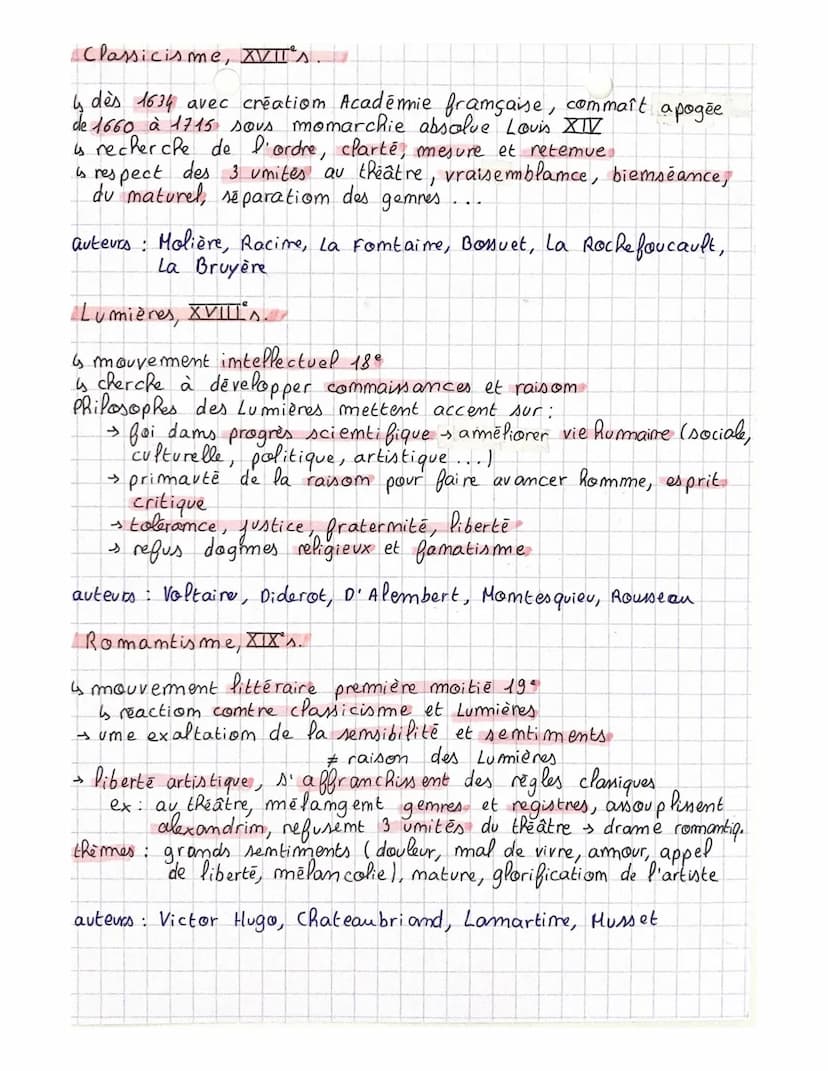 Classicisme, XVIIe s.
↳ dès 1634 avec création Académie française, connaît apogée
de 1660 à 1715 sous monarchie absolue Louis XIV
↳ recherche de l'ordre, clarté, mesure et retenue
↳ respect des 3 unités au théâtre, vraisemblance, bienséance,
du naturel, séparation des genres ...
auteurs : Molière, Racine, La Fontaine, Bossuet, La Rochefoucault,
La Bruyère
Lumières, XVIIIe s.
↳ mouvement intellectuel 18e
↳ cherche à développer connaissances et raison
Philosophes des Lumières mettent accent sur :
→ foi dans progrès scientifique → améliorer vie humaine (sociale,
culturelle, politique, artistique ...)
→ primauté de la raison pour faire avancer homme, esprit
critique
→ tolérance, justice, fraternité, liberté
→ refus dogmes religieux et fanatisme
auteurs : Voltaire, Diderot, D'Alembert, Montesquieu, Rousseau
Romantisme, XIXe s.
↳ mouvement littéraire première moitié 19e
↳ réaction contre classicisme et Lumières
→ une exaltation de la sensibilité et sentiments
≠ raison des Lumières
→ liberté artistique, s'affranchissent des règles classiques
ex : au théâtre, mélangent genres et registres, assouplissent
alexandrin, refusent 3 unités du théâtre → drame romantiq.
thèmes : grands sentiments (douleur, mal de vivre, amour, appel
de liberté, mélancolie), nature, glorification de l'artiste
auteurs : Victor Hugo, Chateaubriand, Lamartine, Musset